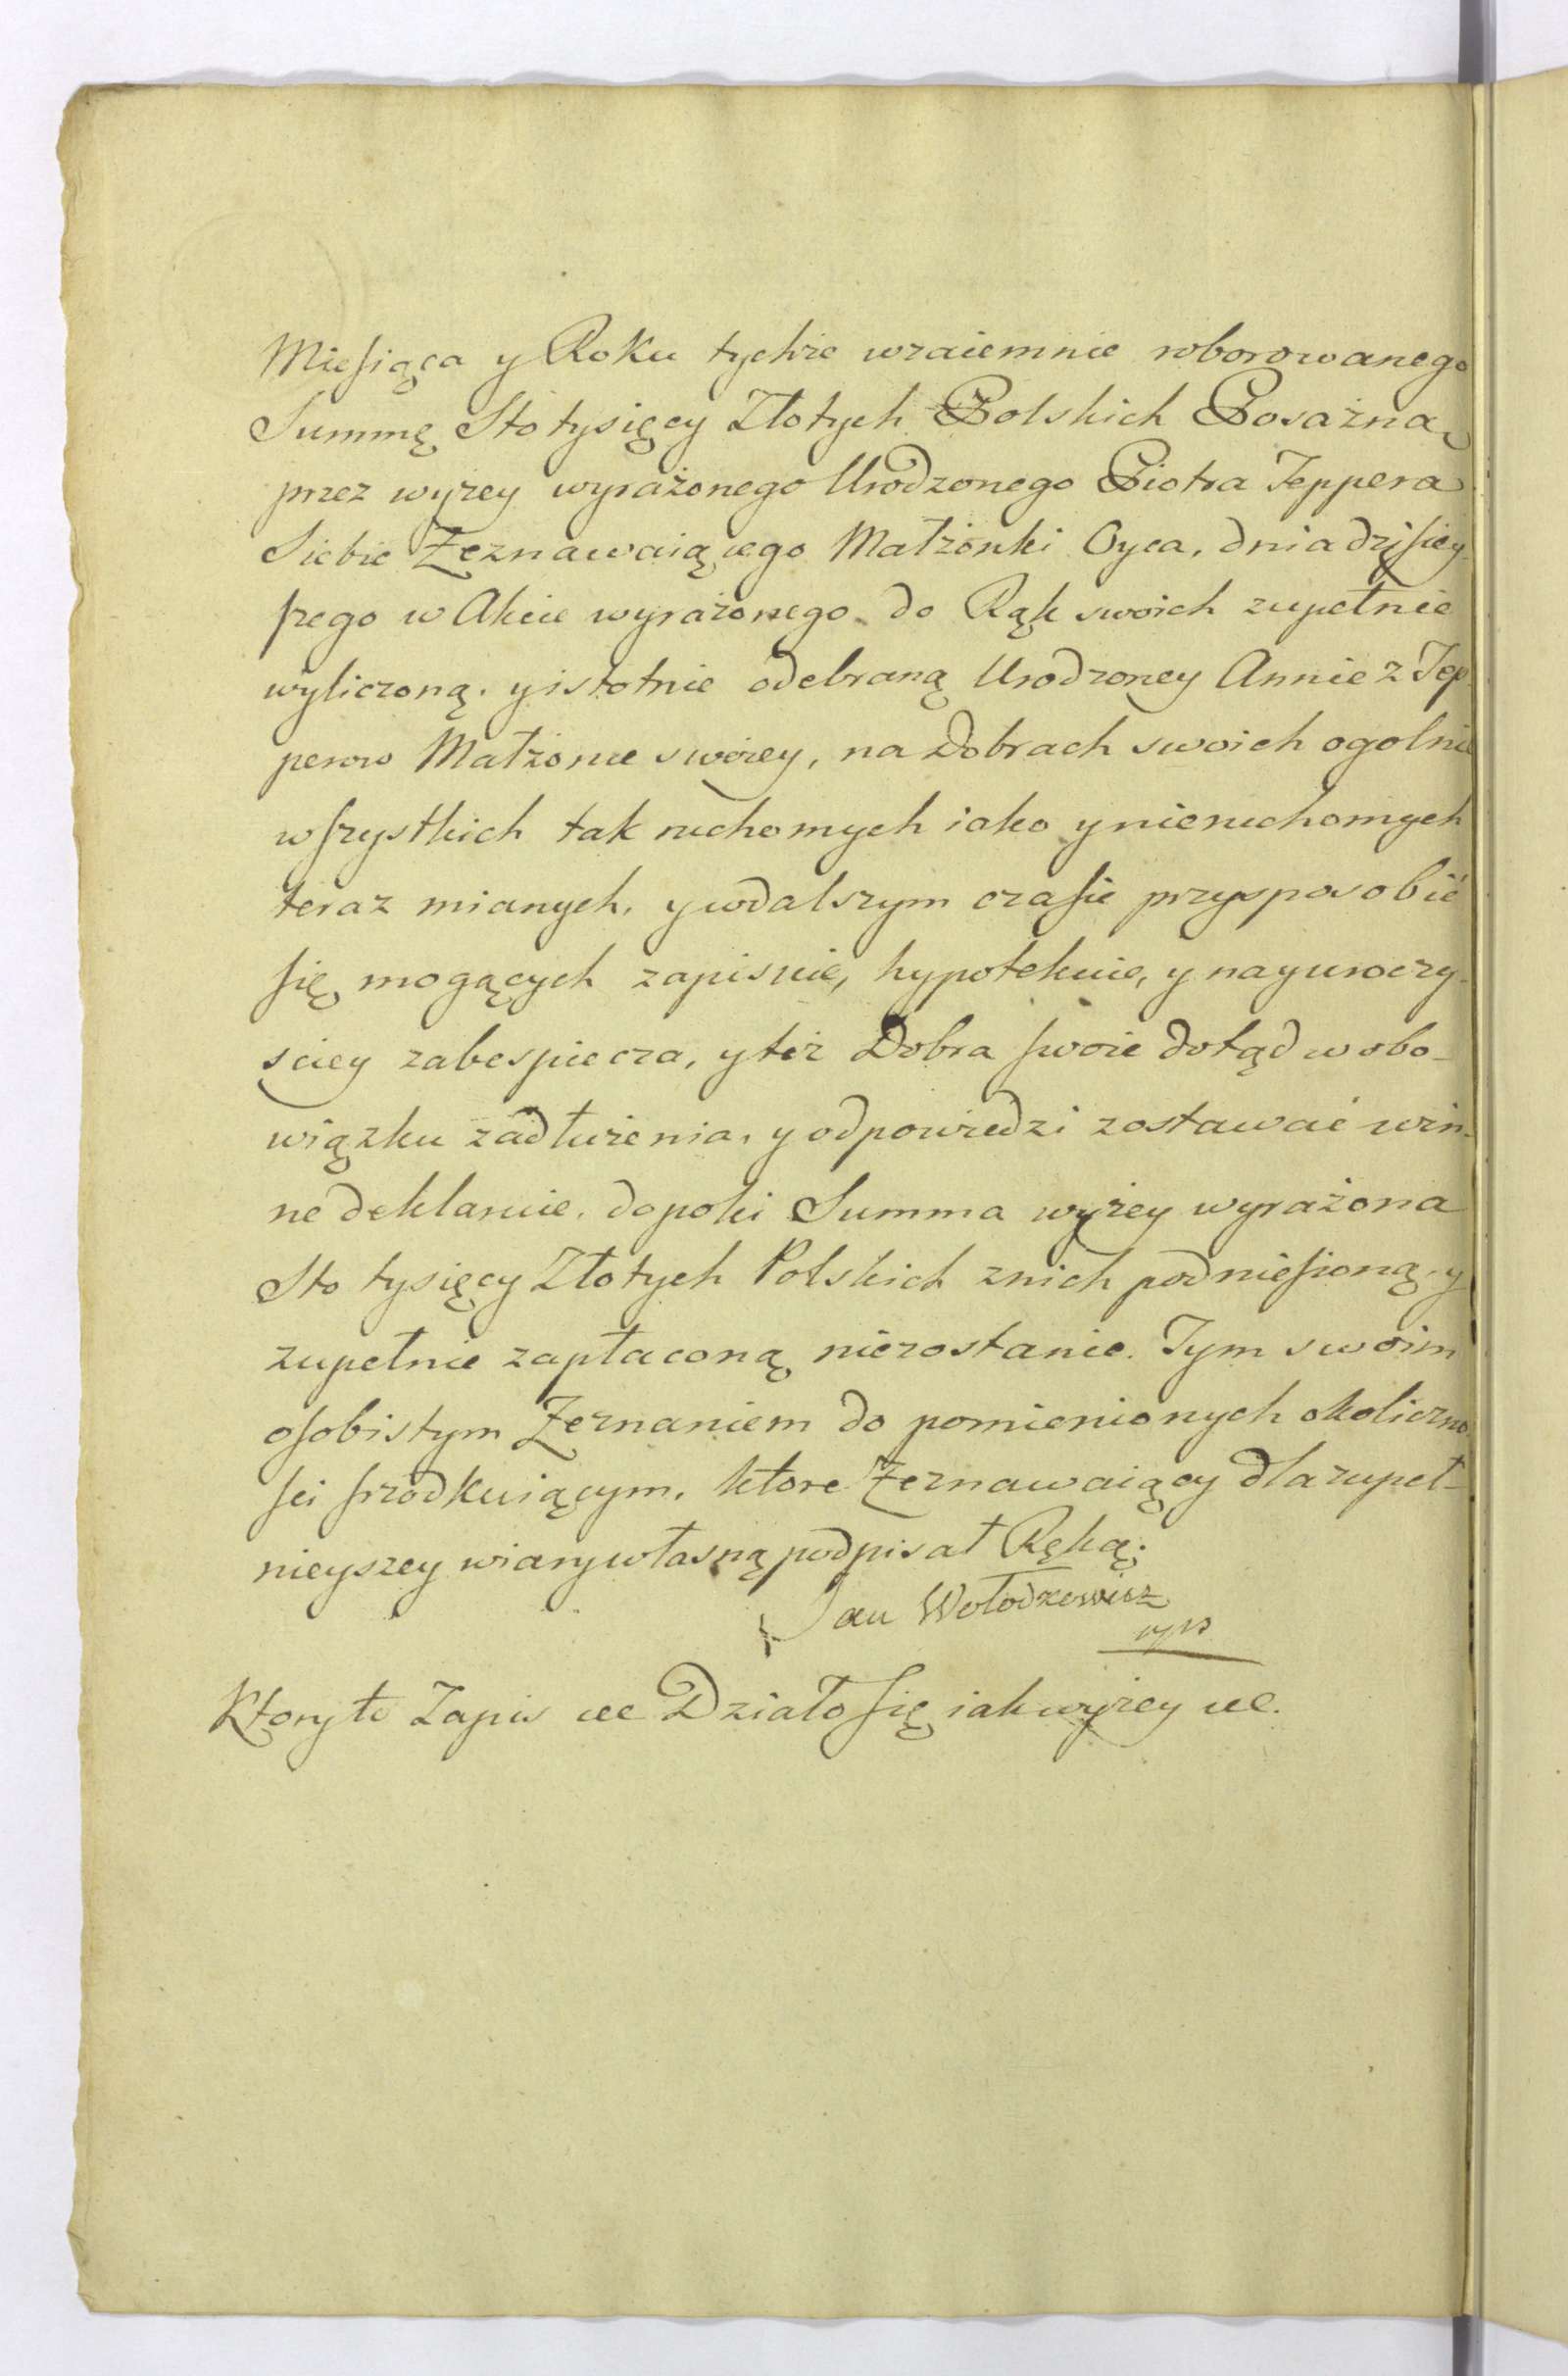 Miesiąca y Roku tychże wzaiemnie roborowanego
Summę Sto tysięcy Złotych Polskich Posażną
przez wyżey wyrażonego Urodzonego Piotra Teppera
Siebie Zeznawaiącego Małżonki Oyca, dnia dzisiey
szego w Akcie wyrażonego do Rąk swoich zupełnie
wyliczoną, y istotnie odebraną Urodzoney Annie z Tep
perow Małżonce swoiey, na Dobrach swoich ogolnie
wszystkich tak ruchomych iako y nieruchomych
teraz mianych, y wdalszym czasie przysposobić
się mogących zapisuie, hypotekuie, y nayuroczy-
sciey zabespiecza, y też Dobra swoie dotąd w obo-
wiązku zadłużenia, y odpowiedzi zostawać win-
ne deklaruie, dopoki Summa wyżey wyrażona
Sto tysięcy Złotych Polskich znich podniesioną, y
zupełnie zapłaconą niezostanie. Tym swoim
osobistym Zeznaniem do pomienionych okoliczno
sci srzodkuiącym, ktore Zeznawaiący dla zupeł-
nieyszey wiary własną podpisał Ręką.
Jan Wołodzewicz
mp
Ktory to Zapis etc Działo się iak wyżey etc.